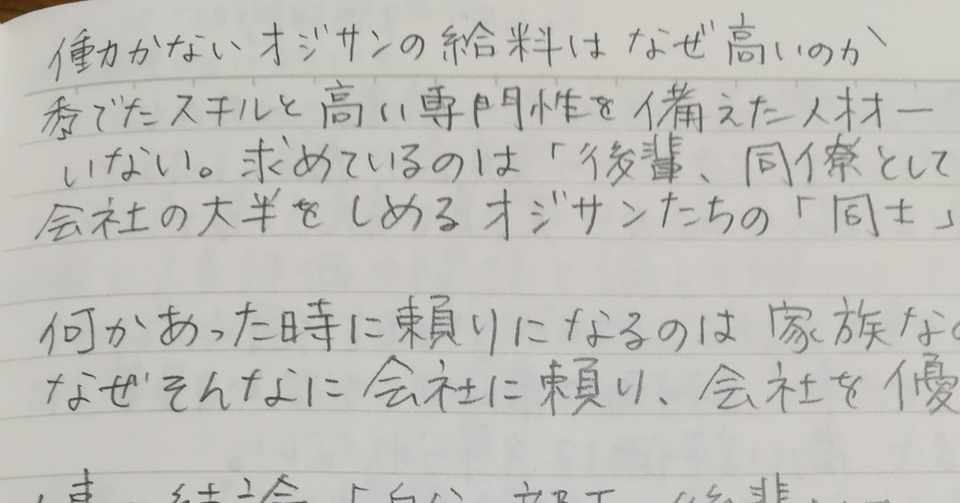 働かないオジサンの給料はなぜ高いのか
秀でたスキルと高い専門性を備えた人材ー
いない。求めているのは「後輩、同僚として
会社の大半をしめるオジサンたちの「同士」
何かあった時に頼りになるのは家族なの
なぜそんなに会社に頼り、会社を優